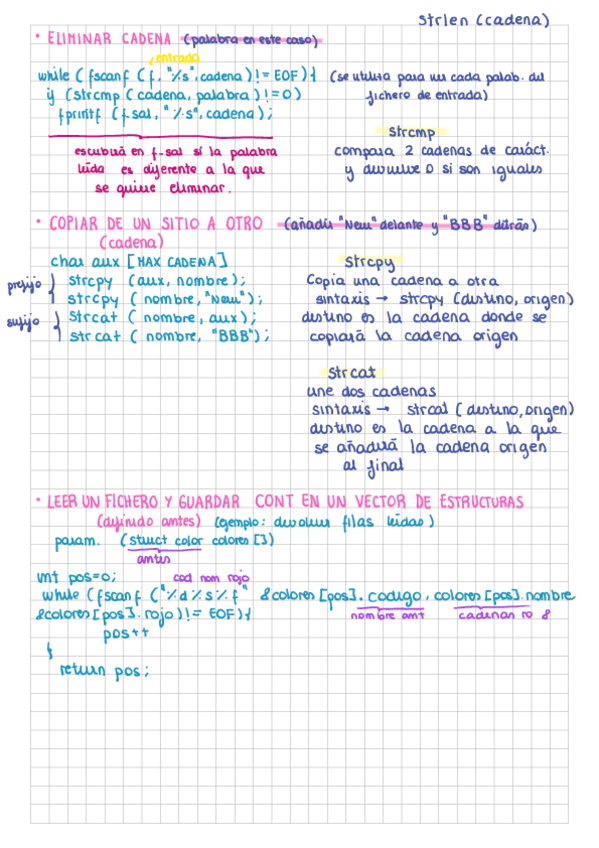 strlen (cadena)
• ELIMINAR CADENA (palabra en este caso)
entrada
while ( fscanf ( f, "%s", cadena ) != EOF ) { (se utiliza para leer cada palab. del
if ( strcmp ( cadena, palabra ) != 0) fichero de entrada)
fprintf ( f.sal, " %s", cadena );
strcmp
escribirá en f-sal si la palabra
leída es diferente a la que
se quiere eliminar.
compara 2 cadenas de caráct.
y devuelve 0 si son iguales
• COPIAR DE UN SITIO A OTRO (añadir "New" delante y "BBB" detrás)
(cadena)
char aux [MAX CADENA]
prefijo
strcpy (aux, nombre);
strcpy ( nombre, "New");
sufijo
strcat ( nombre, aux);
strcat ( nombre, "BBB");
Strcpy
Copia una cadena a otra
sintaxis → strcpy (destino, origen)
destino es la cadena donde se
copiará la cadena origen
Strcat
une dos cadenas
sintaxis → strcat ( destino, origen)
destino es la cadena a la que
se añadirá la cadena origen
al final
• LEER UN FICHERO Y GUARDAR CONT EN UN VECTOR DE ESTRUCTURAS
(definido antes) (ejemplo: devolver filas leidas)
param. (struct color colores [])
antes
int pos=0; cod nom rojo
while ( fscanf ("%d %s %f" &colores [pos]. codigo, colores [pos]. nombre
&colores [pos]. rojo ) != EOF) { nombre ant cadenas no &
pos ++
}
return pos;